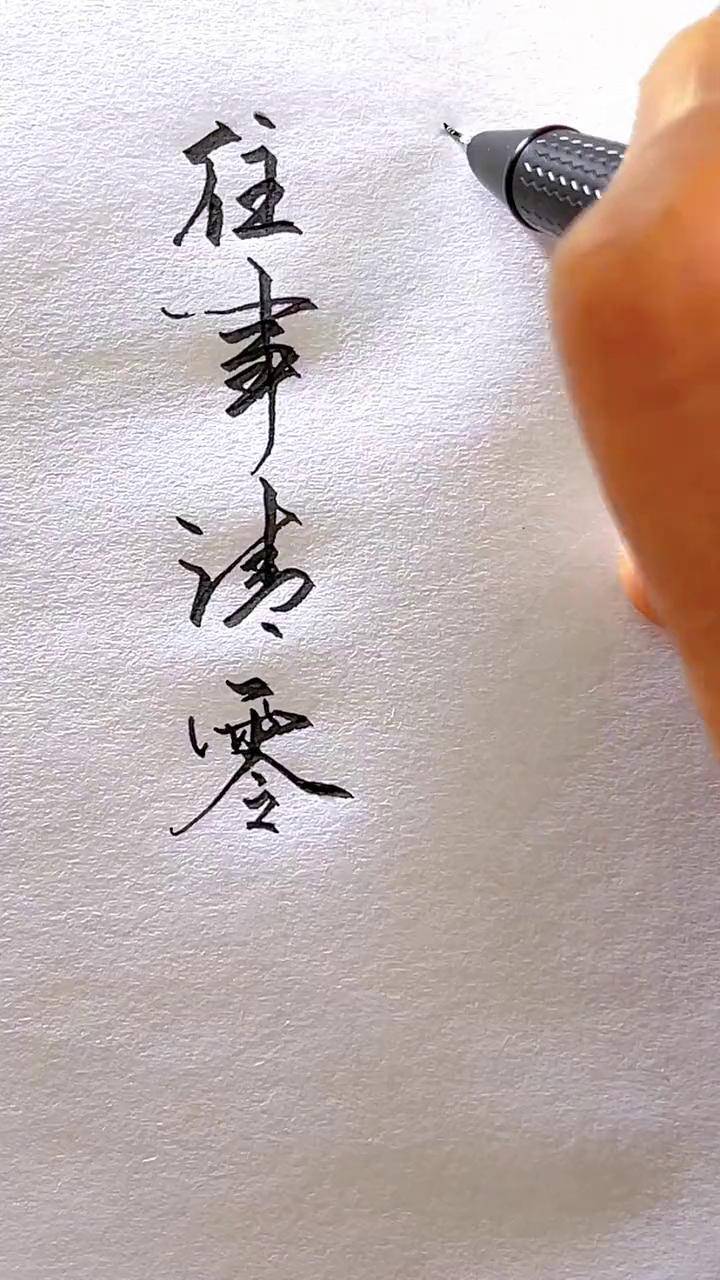 往事清零